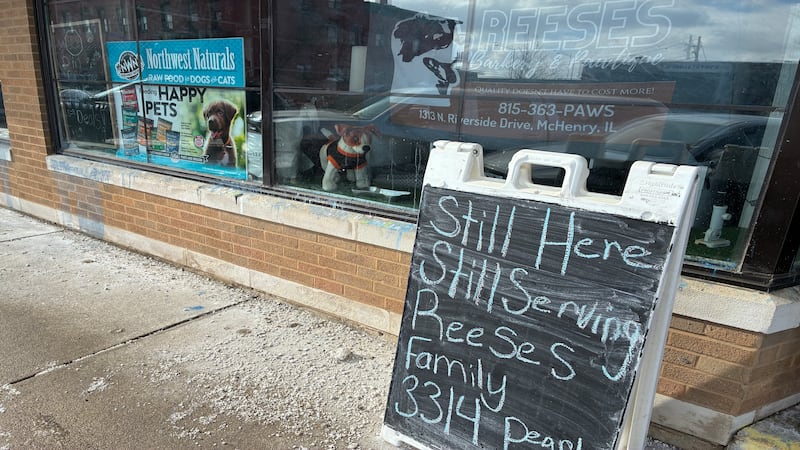 NWN
Northwest Naturals
RAW FOOD for DOGS and CATS
HAPPY
PETS
REESES
Barkery & Pawtique
QUALITY DOESN'T HAVE TO COST MORE!
815-363-PAWS
1313 N. Riverside Drive, McHenry, IL
Still Here
Still Serving
Reeses
Family
3314 Pearl